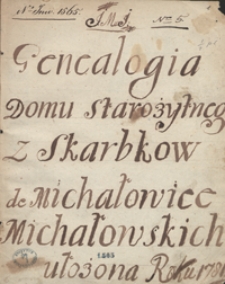 No Inw. 1565. J.M.J. No 5.
Genealogia
Domu Starożytneg
z Skarbkow
de Michałowice
Michałowskich
1565
ułożona Roku 178